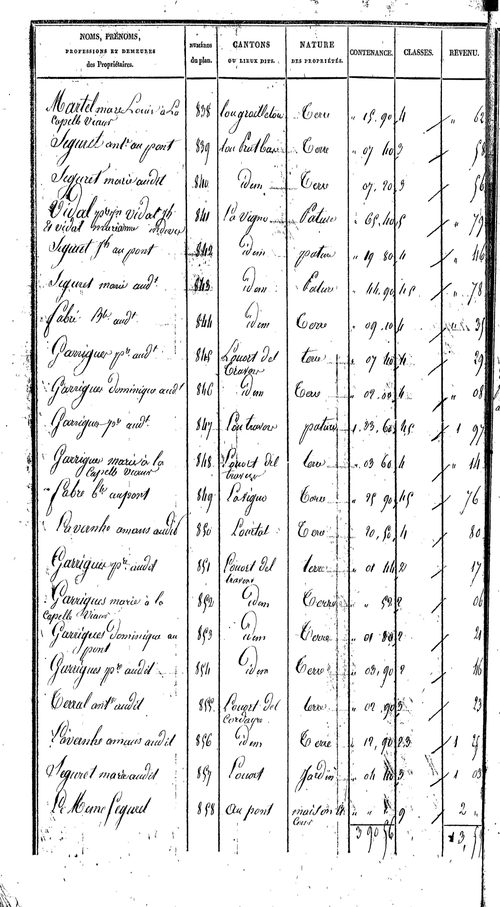 NOMS, PRÉNOMS, PROFESSIONS ET DEMEURES des Propriétaires. NUMÉROS du plan. CANTONS OU LIEUX DITS. NATURE DES PROPRIÉTÉS. CONTENANCE. CLASSES. REVENU.
Martel marc Louis à La Capelle Viaur 838 Terre " 15. 90 4 " 62
Seguret ant. au pont 839 Terre " 07 40 3 " 58
Seguret marie audit 840 idem Terre 07. 20 3 " 56
Vidal vidal et vidal marianne 841 La Vigne Pature " 65. 40 5 " 79
Seguret au pont 842 idem pature " 19 80 4 " 46
Seguret marie audt 843 idem Pature " 44. 90 45 " 78
Fabre audt 844 idem Terre " 09. 10 4 " 35
Garrigues pre audt 845 Louort del travers terre " 07 40 4 29
Garrigues dominique audt 846 idem Terre " 02. 00 4 " 08
Garrigues pre audt 847 Lou travers pature 1. 33. 60 45 1 97
Garrigues marie à la Capelle Viaur 848 Louort del travers terre " 03 60 4 " 14
Fabre au pont 849 Terre " 25. 90 45 76
Lavernhe amans audit 850 Terre 20. 50 4 80
Garrigues pre audit 851 Louort del travers terre " 01 44 2 17
Garrigues marie à la Capelle Viaur 852 idem Terre " " 52 2 06
Garrigues dominique au pont 853 idem Terre " 01 80 2 21
Garrigues pre audit 854 idem Terre " 03, 90 2 46
Terral ant. audit 855 Louort del terre " 02. 90 3 23
Lavernhe amans audit 856 idem Terre " 12, 90 23 1 25
Seguret marie audit 857 Louort Jardin " 04 40 3 1 03
Le Meme Seguret 858 au pont maison et Cour " " 9 2 "
3 90 56